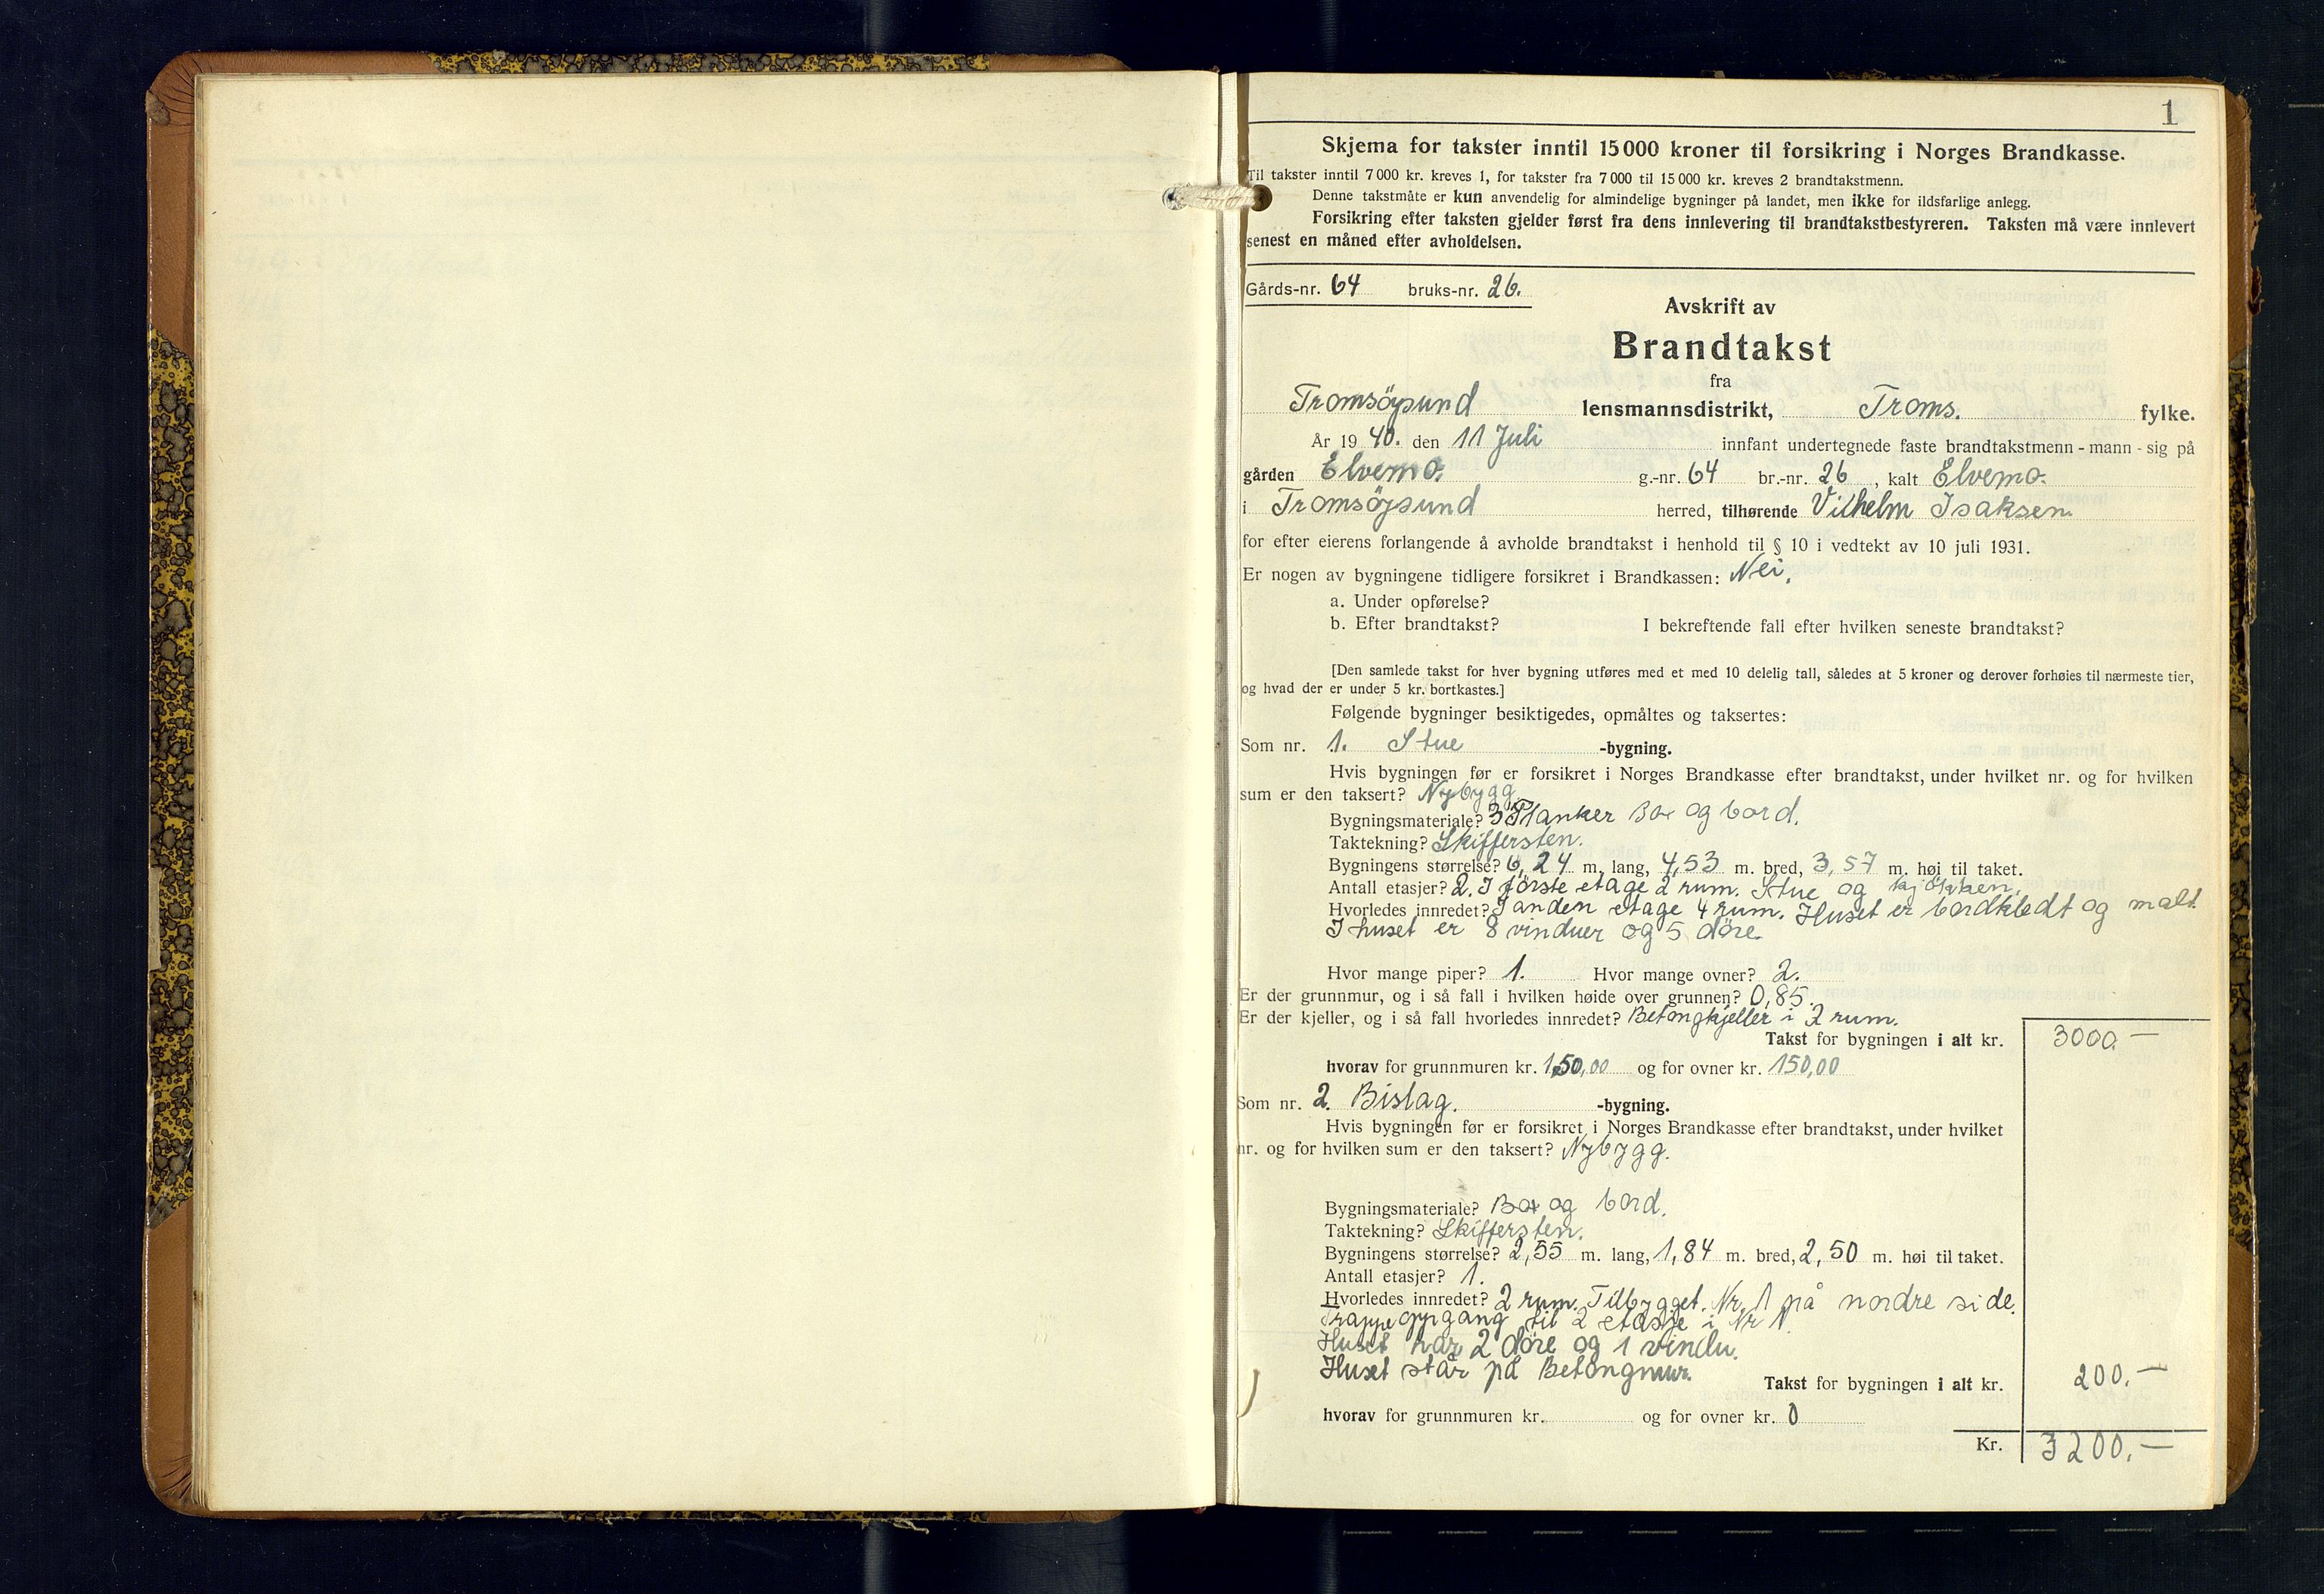 1
Skjema for takster inntil 15 000 kroner til forsikring i Norges Brandkasse.
Til takster inntil 7 000 kr. kreves 1, for takster fra 7 000 til 15 000 kr. kreves 2 brandtakstmenn.
Denne takstmåte er kun anvendelig for almindelige bygninger på landet, men ikke for ildsfarlige anlegg.
Forsikring efter taksten gjelder først fra dens innlevering til brandtakstbestyreren. Taksten må være innlevert
senest en måned efter avholdelsen.
Gårds-nr. 64 bruks-nr. 26.
Avskrift av
Brandtakst
fra
Tromsöysund lensmannsdistrikt, Troms. fylke.
År 1940. den 11 Juli innfant undertegnede faste brandtakstmenn - mann - sig på
gården Elvemo. g.-nr. 64 br.-nr. 26, kalt Elvemo.
i Tromsöysund herred, tilhørende Vilhelm Isaksen.
for efter eierens forlangende å avholde brandtakst i henhold til § 10 i vedtekt av 10 juli 1931.
Er nogen av bygningene tidligere forsikret i Brandkassen: Nei.
a. Under opførelse?
b. Efter brandtakst? I bekreftende fall efter hvilken seneste brandtakst?
[Den samlede takst for hver bygning utføres med et med 10 delelig tall, således at 5 kroner og derover forhøies til nærmeste tier,
og hvad der er under 5 kr. bortkastes.]
Følgende bygninger besiktigedes, opmåltes og taksertes:
Som nr. 1. Stue -bygning.
Hvis bygningen før er forsikret i Norges Brandkasse efter brandtakst, under hvilket nr. og for hvilken
sum er den taksert? Nybygg.
Bygningsmateriale? 3" Planker og bord.
Taktekning? Skiffersten.
Bygningens størrelse? 6,24 m. lang, 4,53 m. bred, 3,57 m. høi til taket.
Antall etasjer? 2. I förste etage 2 rum. Stue og kjökken.
Hvorledes innredet? I anden etage 4 rum. Huset er bordkledt og malt.
I huset er 8 vinduer og 5 döre.
Hvor mange piper? 1. Hvor mange ovner? 2.
Er der grunnmur, og i så fall i hvilken høide over grunnen? 0,85.
Er der kjeller, og i så fall hvorledes innredet? Betongkjeller i 2 rum.
Takst for bygningen i alt kr. 3000.—
hvorav for grunnmuren kr. 150,00 og for ovner kr. 150,00
Som nr. 2. Bislag. -bygning.
Hvis bygningen før er forsikret i Norges Brandkasse efter brandtakst, under hvilket
nr. og for hvilken sum er den taksert? Nybygg.
Bygningsmateriale? og bord.
Taktekning? Skiffersten.
Bygningens størrelse? 2,55 m. lang, 1,84 m. bred, 2,50 m. høi til taket.
Antall etasjer? 1.
Hvorledes innredet? 2 rum. Tilbygget. Nr. 1 på nordre side.
Trappeopgang til 2 etasje i Nr 1.
Huset har 2 döre og 1 vindu.
Huset står på Betongmur.
Takst for bygningen i alt kr. 200.—
hvorav for grunnmuren kr. og for ovner kr. 0
Kr. 3200.—